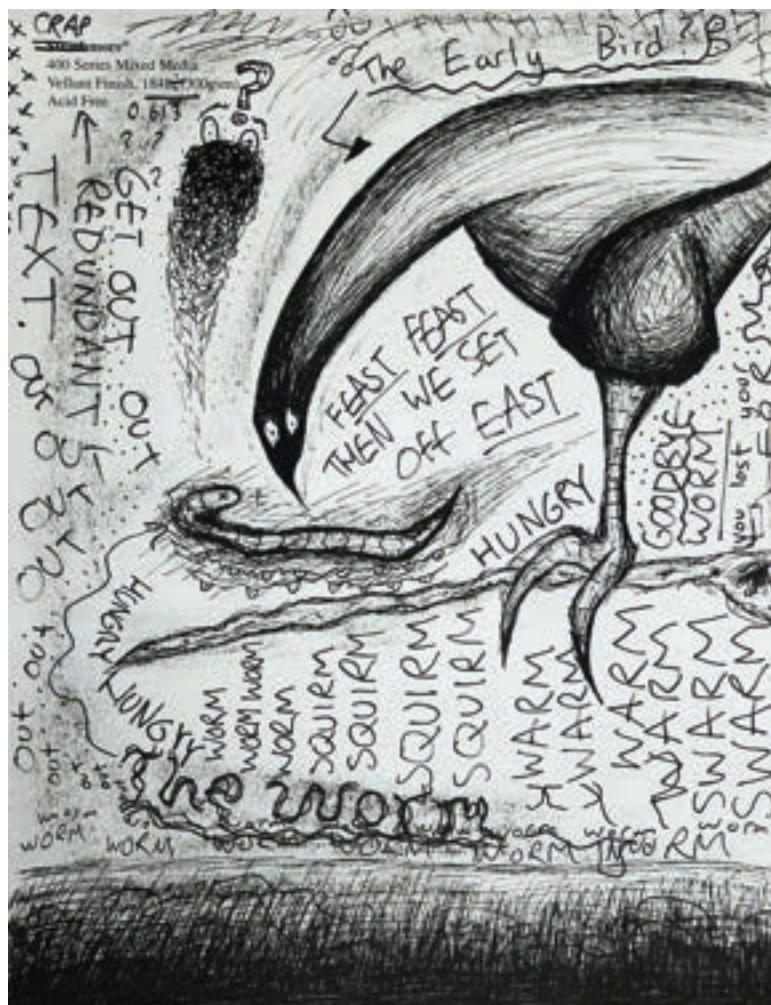 CRAP
400 Series Mixed Media
Vellum Finish, 184lb (300gsm)
Acid Free
0.613
?
? ?
?
The Early Bird?
← REDUNDANT
TEXT.
GET OUT OUT
OUT OUT OUT OUT
OUT OUT
out out
out
FEAST FEAST
THEN WE SET
OFF EAST
HUNGRY
GOODBYE
WORM
you lost your
HUNGRY
HUNGRY
WORM
WORM WORM
WORM
SQUIRM
SQUIRM
SQUIRM
SQUIRM
WARM
WARM
WARM
WARM
SWARM
SWARM
The Worm
worm
worm worm worm
WORM WORM WORM WORM WORM WORM